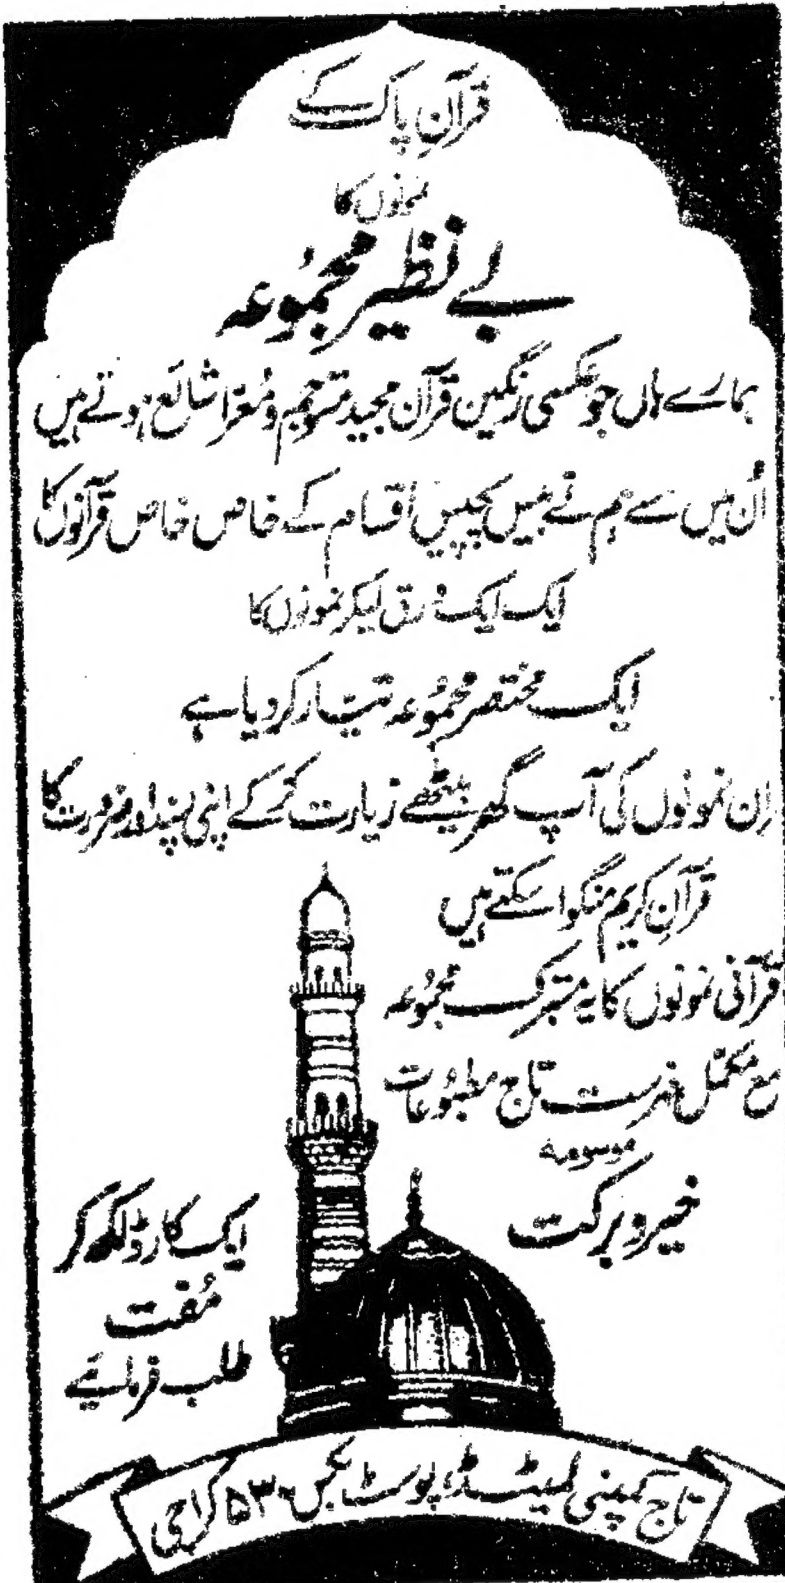 قرآنِ پاک کے
نمونوں کا
بے نظیر مجموُعہ
ہمارے ہاں جو عکسی رنگین قرآن مجید مترجم و مُعرّا شائع ہوتے ہیں
اُن میں سے ہم نے بیس پچیس اقسام کے خاص خاص قرآنوں کا
ایک ایک ورق لیکر نمونوں کا
ایک مختصر مجموُعہ تیّار کر دیا ہے
اِن نمونوں کی آپ گھر بیٹھے زیارت کر کے اپنی پسند اور ضرورت کا
قرآنِ کریم منگوا سکتے ہیں
قرآنی نمونوں کا یہ متبرک مجموُعہ
مع مکمّل فہرست تاج مطبوُعات
موسومہ
خیر و برکت
ایک کارڈ لکھ کر
مُفت
طلب فرمائیے
تاج کمپنی لمیٹڈ، پوسٹ بکس ۵۳۰ کراچی